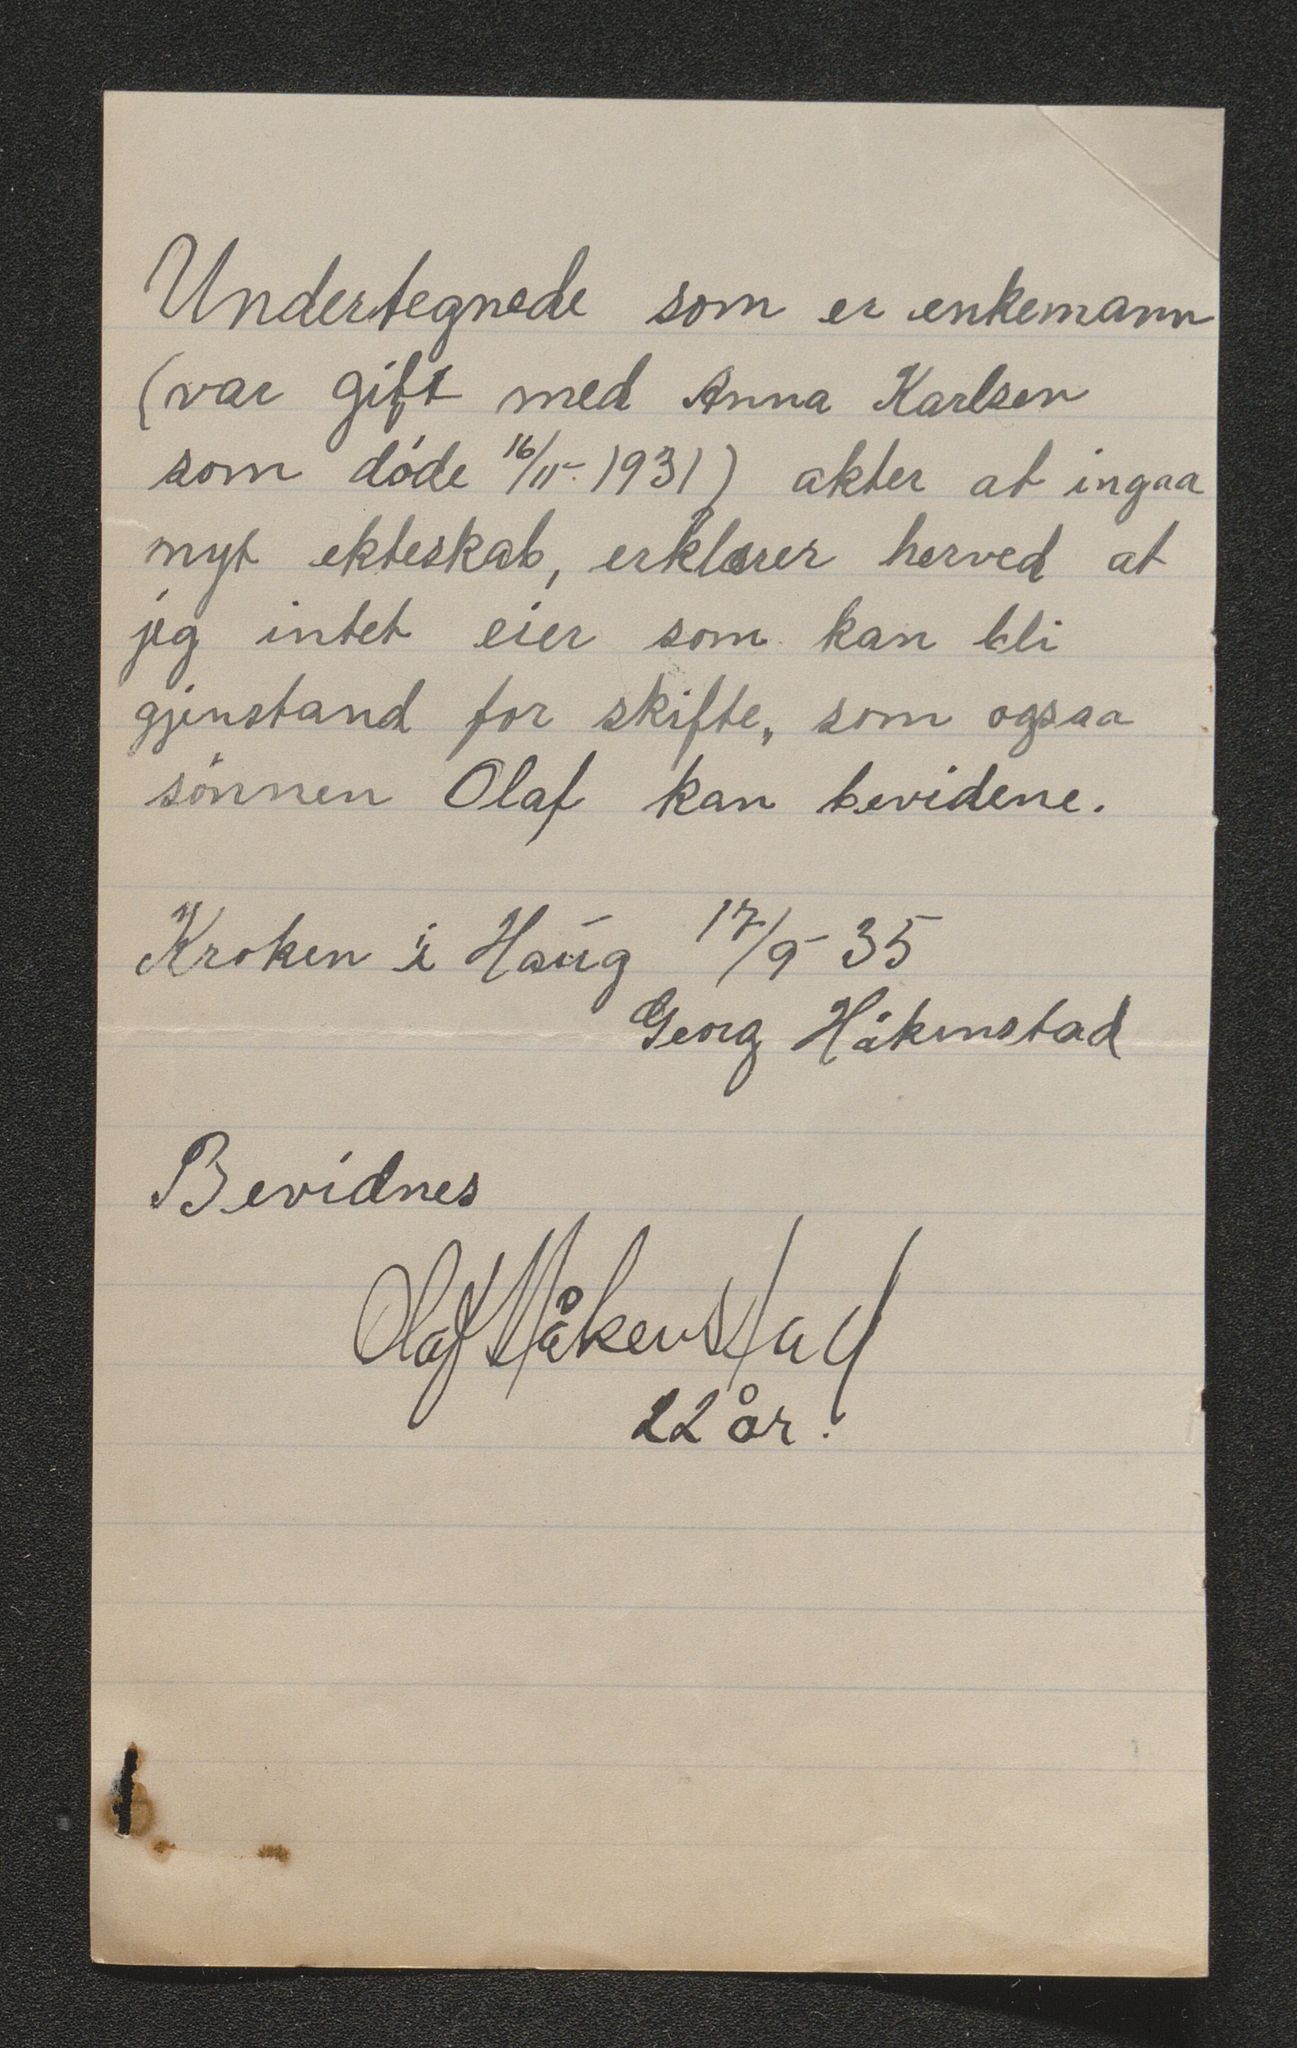 Undertegnede som er enkemann
(var gift med Anna Karlsen
som döde 16/11-1931) akter at ingaa
nyt ekteskab, erklærer herved at
jeg intet eier som kan bli
gjenstand for skifte, som ogsaa
sönnen Olaf kan bevidene.
Kroken i Haug 17/9-35
Georg Håkenstad
Bevidnes
Olaf Håkenstad
22 år.